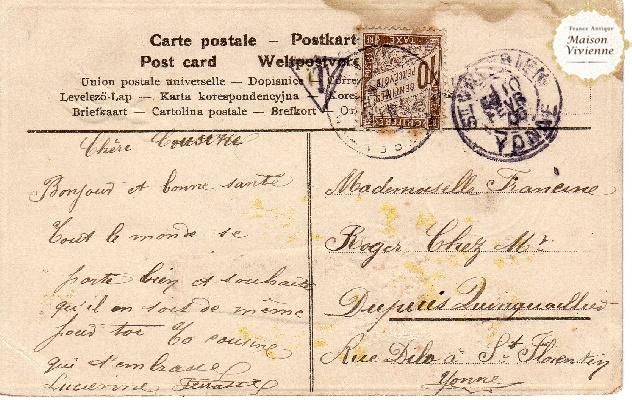 France Antique
Maison
Vivienne
Carte postale – Postkart
Post card – Weltpostver
Union postale universelle — Dopisnice — Corre
Levelező-Lap — Karta korespondencyjna — Kores
Briefkaart — Cartolina postale — Brefkort — Or
T
10
CENTIMES
TAXE
ST YONNE
10
FEVR
YONNE
Chère Cousine
Bonjour et bonne santé
Tout le monde se
porte bien et souhaite
qu'il en soit de même
pour toi Ta cousine
qui t'embrasse
Lucienne
Mademoiselle Francine
Roger Chez Mr
Dupuis Quinquaillier
Rue Dilo à St Florentin
Yonne